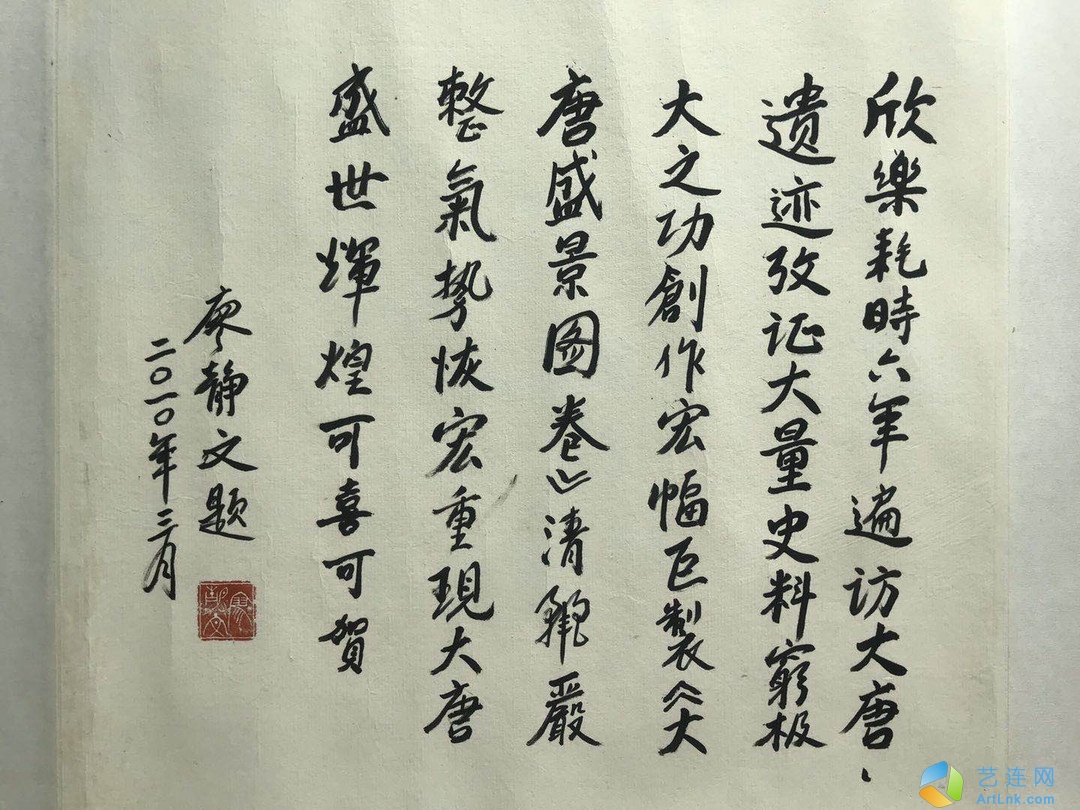 欣樂耗時六年遍访大唐、
遗迹攷证大量史料窮极
大之功創作宏幅巨製《大
唐盛景图卷》清麗严
整氣势恢宏重現大唐
盛世輝煌可喜可賀
廖静文题
二〇一〇年三月
艺连网
ArtLnk.com